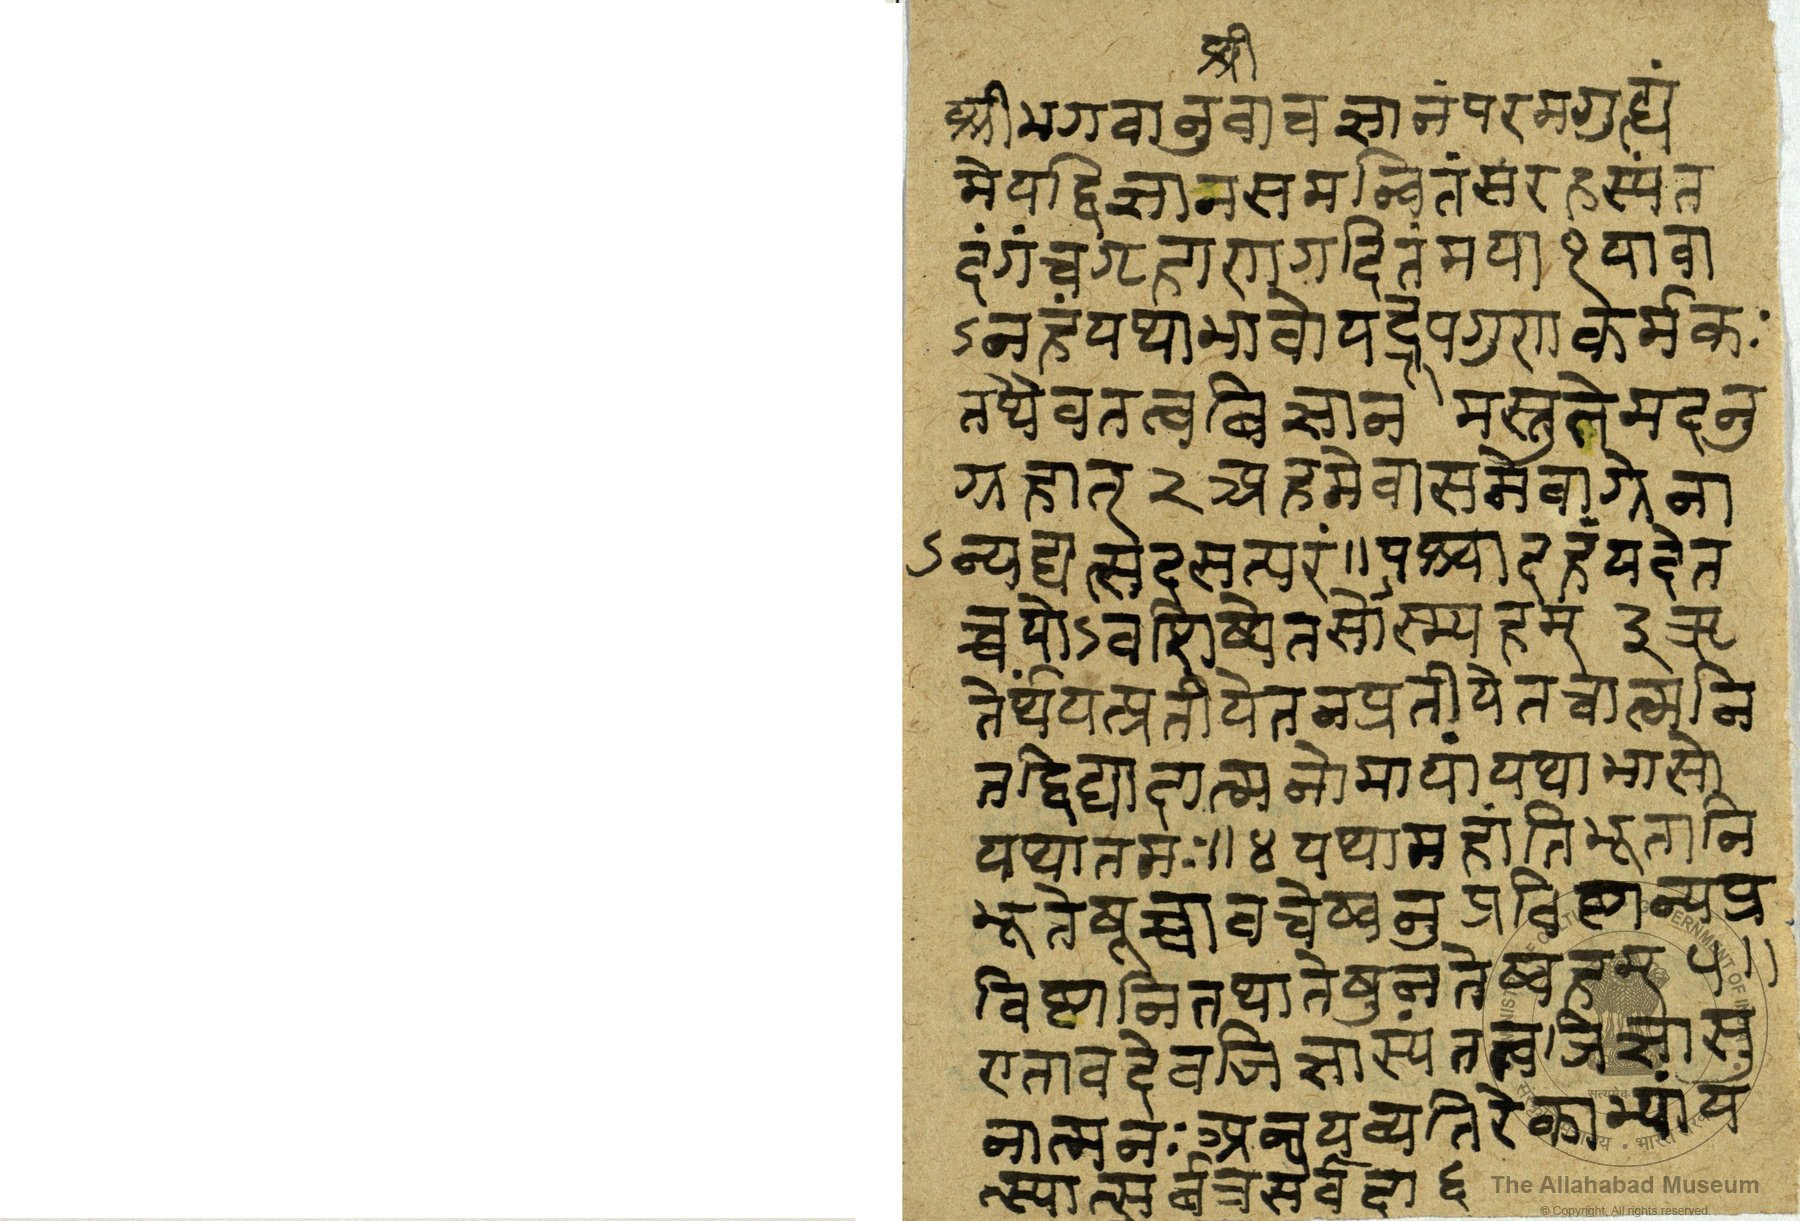 श्री
श्रीभगवानुवाच ज्ञानंपरमगुह्यं
मेयद्विज्ञानसमन्वितंसरहस्यंत
दंगंच्चगृहाणगदितंमया१यावा
ऽनहंयथाभावोयद्रूपगुणकर्मकः
तथैवतत्वविज्ञान मस्तुतेमदनु
ग्रहात् २ अहमेवासमेवाग्रेना
ऽन्यद्यत्सदसत्परं॥पश्चादहंयदेत
च्चयोऽवशिष्येतसोस्म्यहम् ३ ऋ
तेर्थंयत्प्रतीयेतनप्रतीयेतचात्मनि
तद्विद्यादात्मनोमायांयथाभासो
यथातमः॥४ यथामहांतिभूतानि
भूतेषूच्चावचेष्वनु प्रविष्टान्यप्र
विष्टानितथातेषुनतेष्वहम् ५॥
एतावदेवजिज्ञास्यंतत्वजिज्ञासु
नात्मनः अन्वयव्यतिरेकाभ्यांय
त्स्यात्सर्वत्रसर्वदा ६
The Allahabad Museum
© Copyright, All rights reserved.